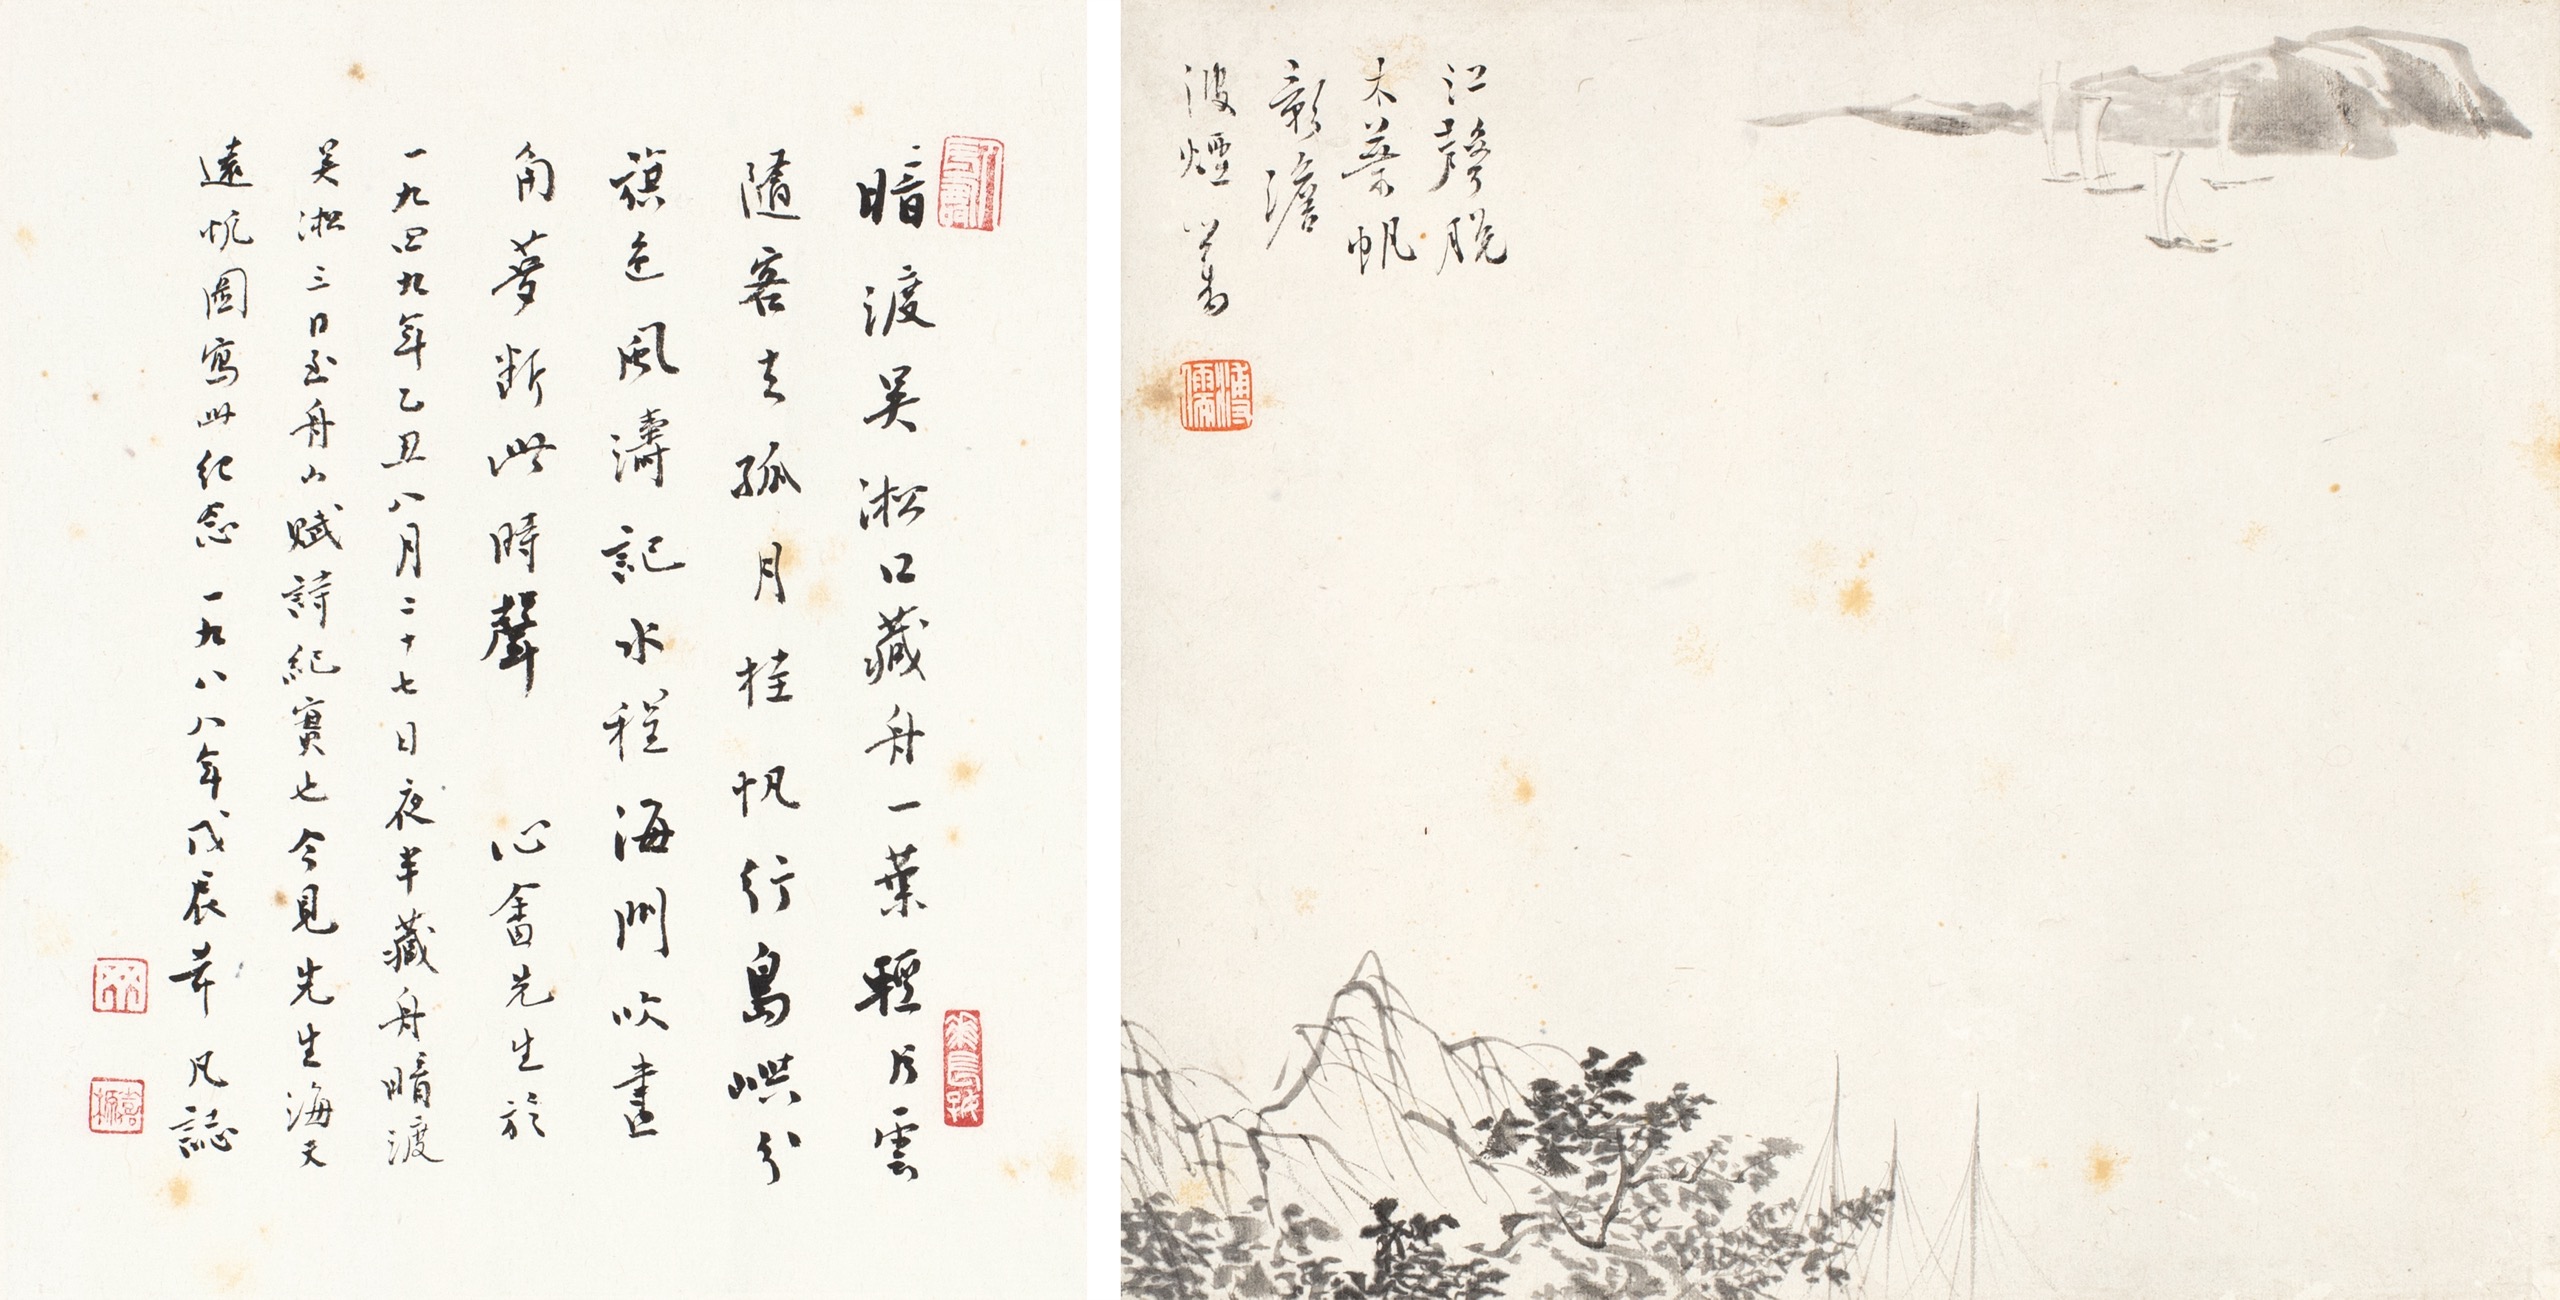 暗渡吳淞口藏舟一葉輕片雲
隨客去孤月挂帆行島嶼分
旗色風濤記水程海門吹畫
角夢斷此時聲　心畬先生於
一九四九年乙丑八月二十七日夜半藏舟暗渡
吳淞三日至舟山賦詩紀實也今見先生海天
遠帆圖寫此紀念一九八八年戊辰 凡誌
江聲脫
木葉帆
影澹
波煙 溥
溥儒